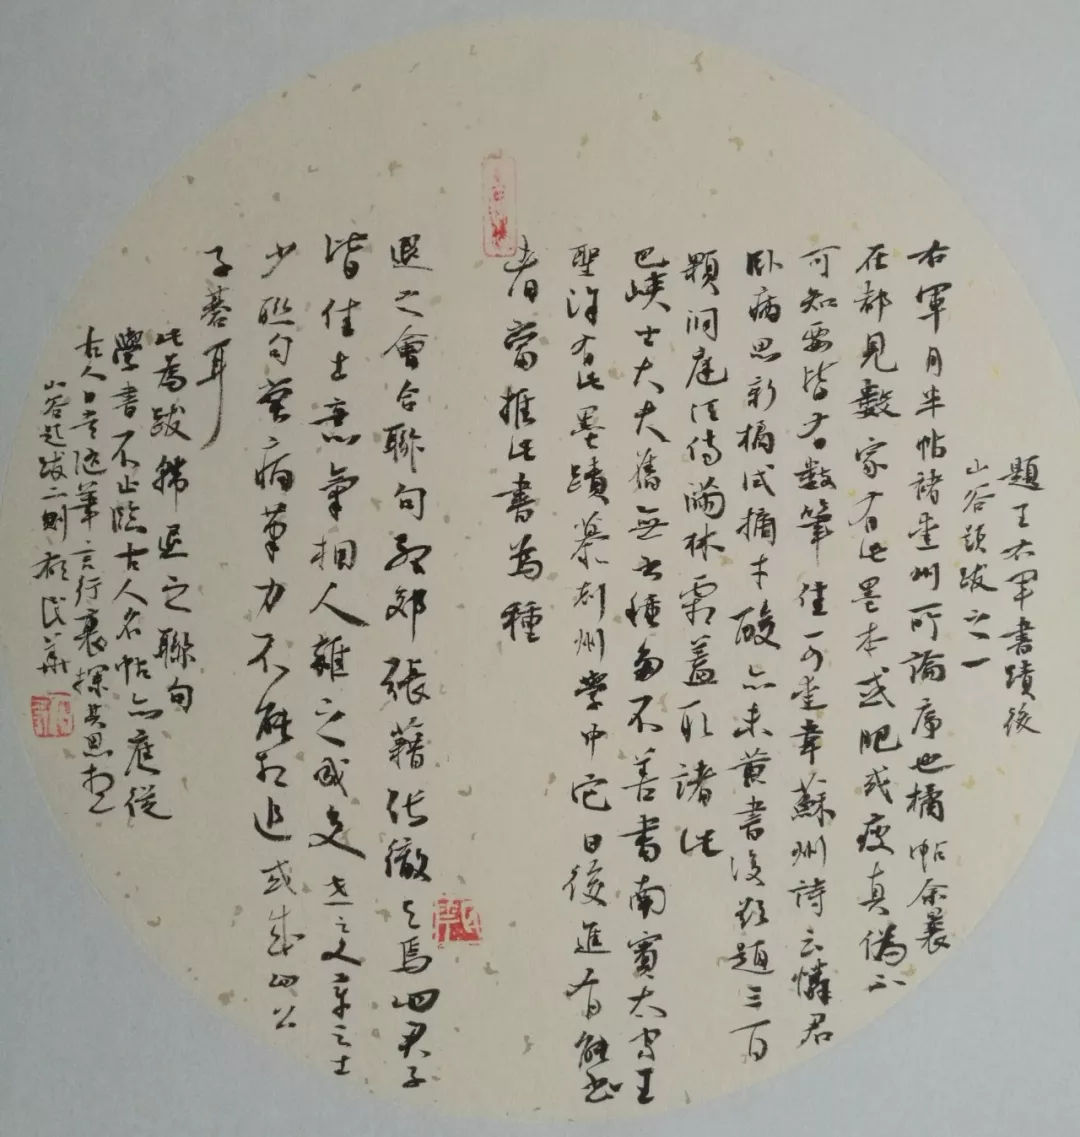 題王右軍書蹟後
山谷題跋之一
右軍月半帖諸州所論序也橘帖余曩
在都見數家有此墨本或肥或瘦真偽不
可知要皆有數筆佳可喜韋蘇州詩云憐君
臥病思新橘試摘才酸亦未黃書後欲題三百
顆洞庭須待滿林霜蓋取諸此
巴峽士大夫舊無書種多不善書南賓太守王
聖涂有此墨蹟摹刻州學中它日後進有能書
者當推此書為種
退之會合聯句孟郊張籍張徹与焉四君子
皆佳士意氣相入雜之成文世之文章之士
少聯句嘗病筆力不能相追或成四公
子棊耳
此為跋韓退之聯句
學書不止臨古人名帖亦應從
古人日常隨筆言行裏探其思想
山谷題跋二則 民華